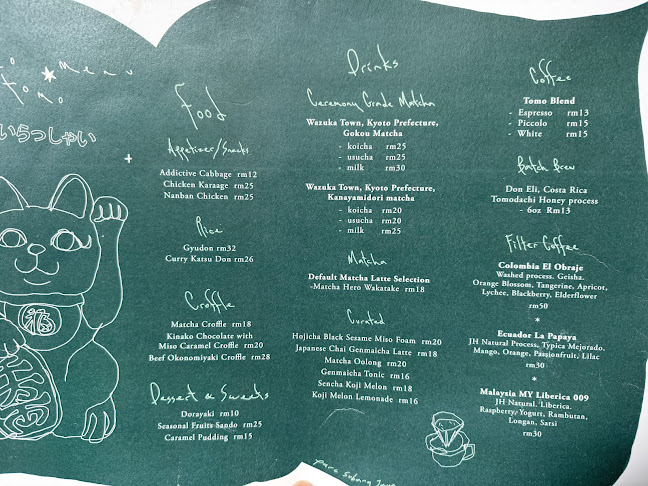 Menu
Tomo
いらっしゃい
Food
Appetizer/Snacks
Addictive Cabbage rm12
Chicken Karaage rm25
Nanban Chicken rm25
Rice
Gyudon rm32
Curry Katsu Don rm26
Croffle
Matcha Croffle rm18
Kinako Chocolate with
Miso Caramel Croffle rm20
Beef Okonomiyaki Croffle rm28
Dessert & Sweets
Dorayaki rm10
Seasonal Fruits Sando rm25
Caramel Pudding rm15
Drinks
Ceremony Grade Matcha
Wazuka Town, Kyoto Prefecture,
Gokou Matcha
- koicha rm25
- usucha rm25
- milk rm30
Wazuka Town, Kyoto Prefecture,
Kanayamidori matcha
- koicha rm20
- usucha rm20
- milk rm25
Matcha
Default Matcha Latte Selection
-Matcha Hero Wakatake rm18
Curated
Hojicha Black Sesame Miso Foam rm20
Japanese Chai Genmaicha Latte rm18
Matcha Oolong rm20
Genmaicha Tonic rm16
Sencha Koji Melon rm18
Koji Melon Lemonade rm16
Coffee
Tomo Blend
- Espresso rm13
- Piccolo rm15
- White rm15
Batch Brew
Don Eli, Costa Rica
Tomodachi Honey process
- 6oz Rm13
Filter Coffee
Colombia El Obraje
Washed process. Geisha.
Orange Blossom, Tangerine, Apricot,
Lychee, Blackberry, Elderflower
rm50
*
Ecuador La Papaya
JH Natural Process, Typica Mejorado.
Mango, Orange, Passionfruit, Lilac
rm30
*
Malaysia MY Liberica 009
JH Natural. Liberica.
Raspberry Yogurt, Rambutan,
Longan, Sarsi
rm30